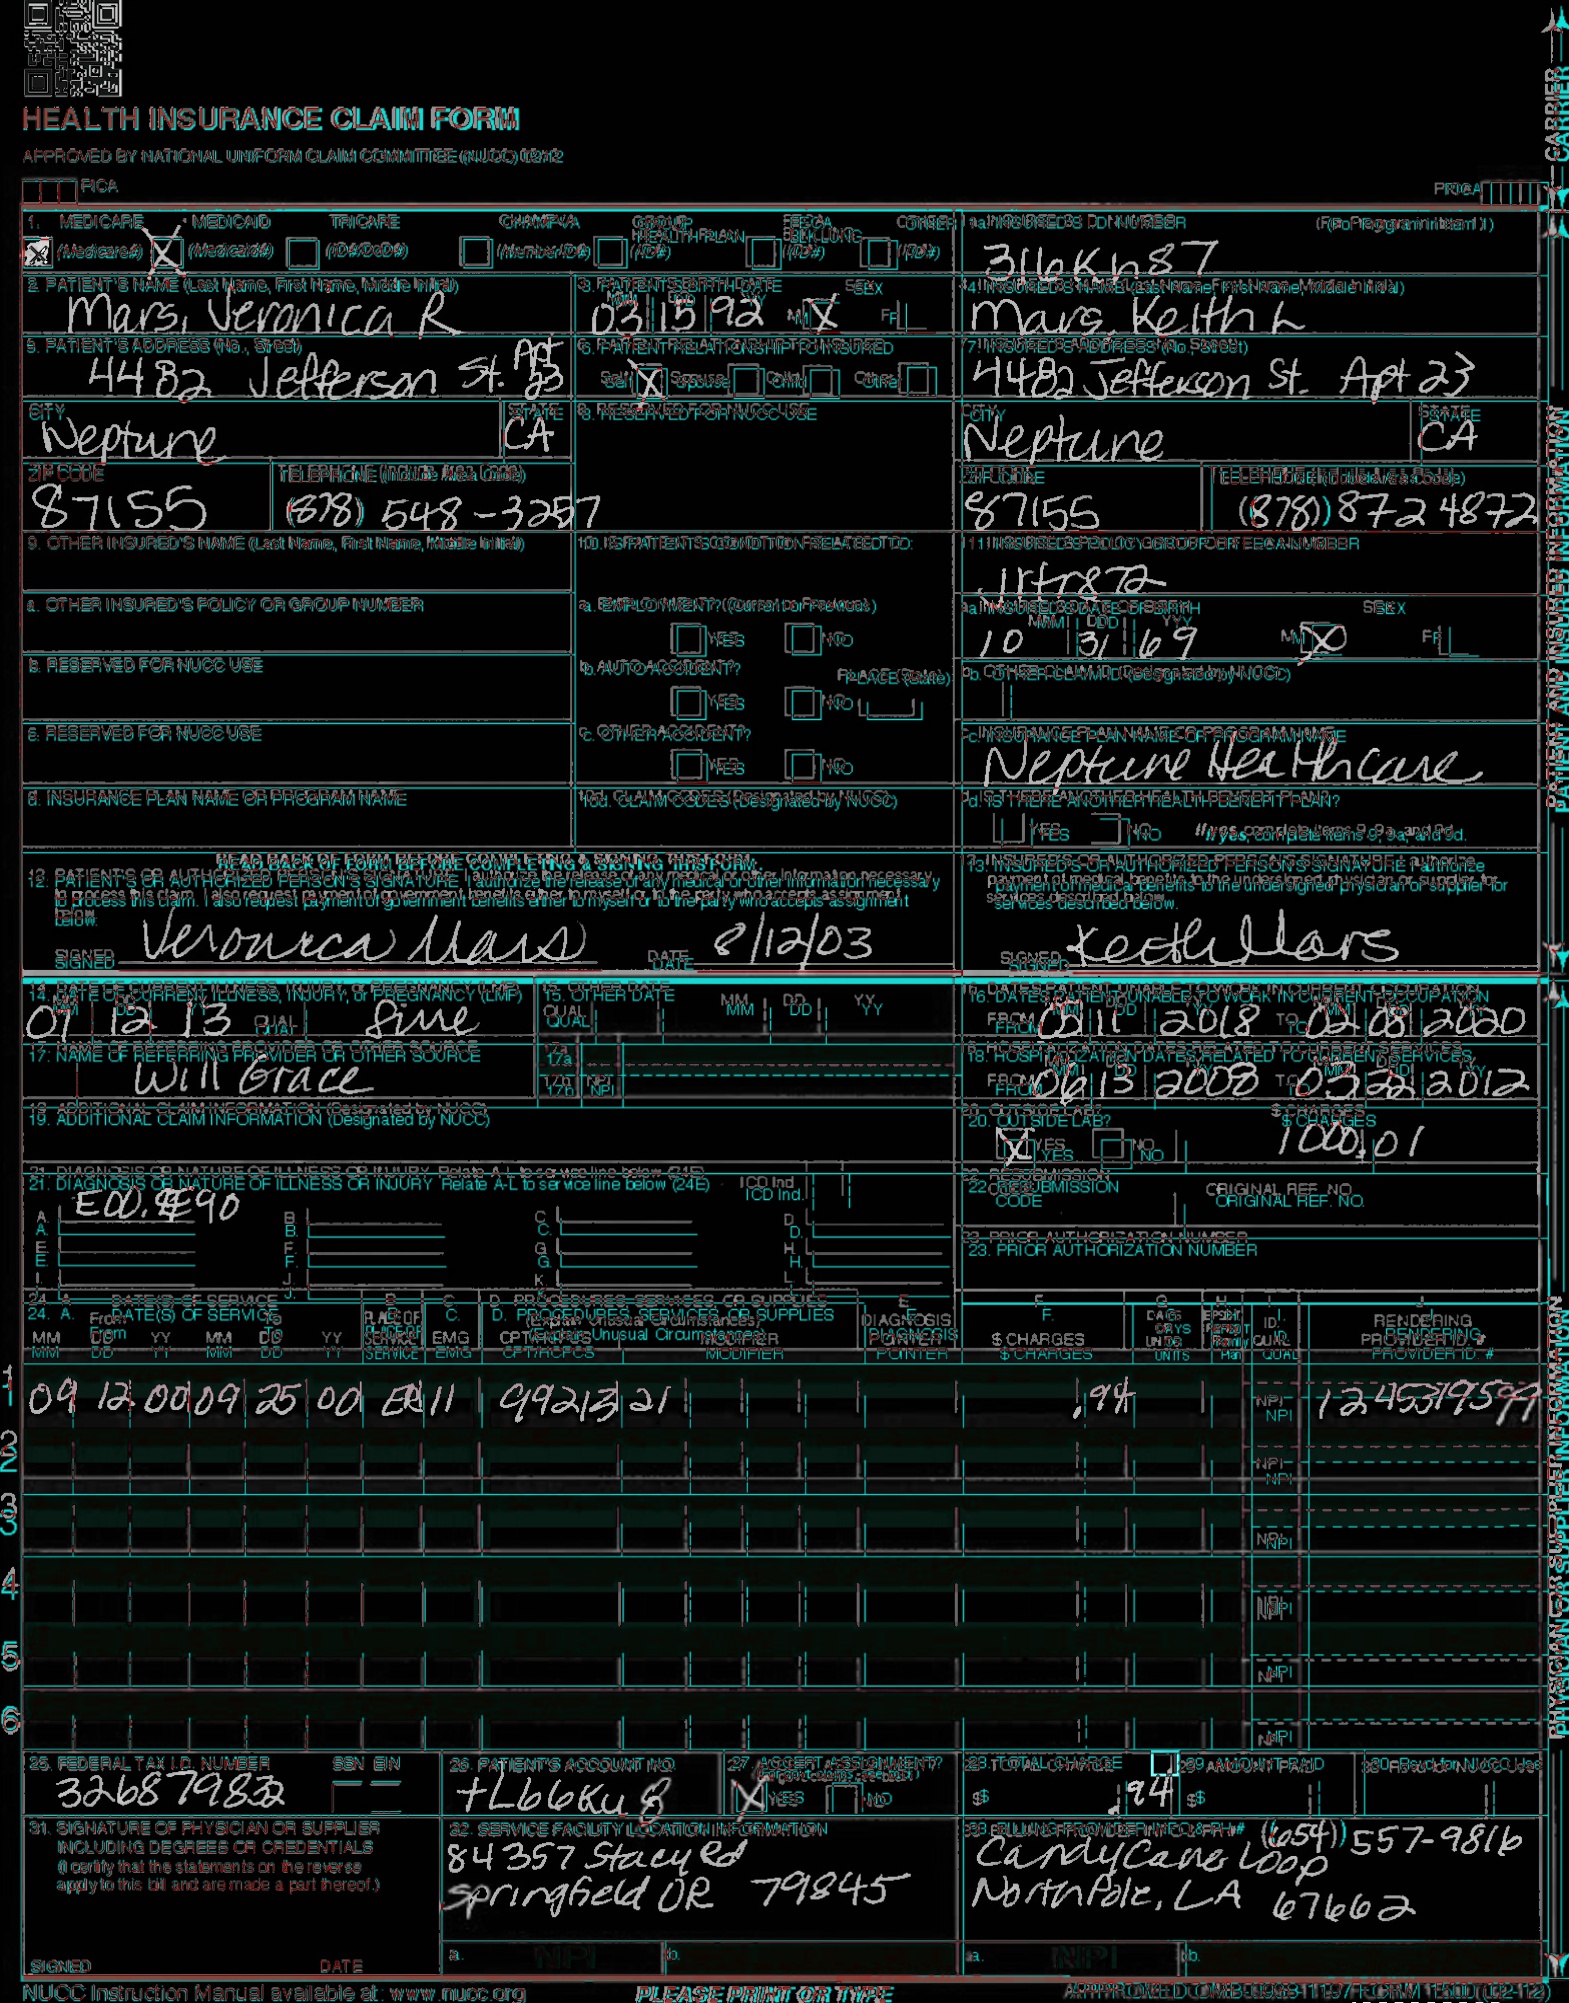 HEALTH INSURANCE CLAIM FORM
APPROVED BY NATIONAL UNIFORM CLAIM COMMITTEE (NUCC) 02/12
PICA PICA
CARRIER
1. MEDICARE MEDICAID TRICARE CHAMPVA GROUP HEALTH PLAN FECA BLK LUNG OTHER 1a. INSURED'S I.D. NUMBER (For Program in Item 1)
(Medicare#) X (Medicaid#) (ID#/DoD#) (Member ID#) (ID#) (ID#) (ID#)
316Kh87
2. PATIENT'S NAME (Last Name, First Name, Middle Initial) 3. PATIENT'S BIRTH DATE SEX 4. INSURED'S NAME (Last Name, First Name, Middle Initial)
Mars, Veronica R 03 15 92 M X F Mars, Keith L
5. PATIENT'S ADDRESS (No., Street) 6. PATIENT RELATIONSHIP TO INSURED 7. INSURED'S ADDRESS (No., Street)
4482 Jefferson St. Apt 23 Self X Spouse Child Other 4482 Jefferson St. Apt 23
CITY STATE 8. RESERVED FOR NUCC USE CITY STATE
Neptune CA Neptune CA
ZIP CODE TELEPHONE (Include Area Code) ZIP CODE TELEPHONE (Include Area Code)
87155 (878) 548-3257 87155 (878) 872 4872
9. OTHER INSURED'S NAME (Last Name, First Name, Middle Initial) 10. IS PATIENT'S CONDITION RELATED TO: 11. INSURED'S POLICY GROUP OR FECA NUMBER
a. OTHER INSURED'S POLICY OR GROUP NUMBER a. EMPLOYMENT? (Current or Previous) a. INSURED'S DATE OF BIRTH SEX
YES NO MM DD YY
10 31 69 M X F
b. RESERVED FOR NUCC USE b. AUTO ACCIDENT? PLACE (State) b. OTHER CLAIM ID (Designated by NUCC)
YES NO
c. RESERVED FOR NUCC USE c. OTHER ACCIDENT? c. INSURANCE PLAN NAME OR PROGRAM NAME
YES NO Neptune Healthcare
d. INSURANCE PLAN NAME OR PROGRAM NAME 10d. CLAIM CODES (Designated by NUCC) d. IS THERE ANOTHER HEALTH BENEFIT PLAN?
YES NO If yes, complete items 9, 9a, and 9d.
READ BACK OF FORM BEFORE COMPLETING & SIGNING THIS FORM.
12. PATIENT'S OR AUTHORIZED PERSON'S SIGNATURE I authorize the release of any medical or other information necessary
to process this claim. I also request payment of government benefits either to myself or to the party who accepts assignment
below.
SIGNED Veronica Mars DATE 8/12/03
13. INSURED'S OR AUTHORIZED PERSON'S SIGNATURE I authorize
payment of medical benefits to the undersigned physician or supplier for
services described below.
SIGNED Keith Mars
PATIENT AND INSURED INFORMATION
14. DATE OF CURRENT ILLNESS, INJURY, or PREGNANCY (LMP) 15. OTHER DATE MM DD YY 16. DATES PATIENT UNABLE TO WORK IN CURRENT OCCUPATION
12 13 QUAL. QUAL. FROM 11 2018 TO 02 08 2020
17. NAME OF REFERRING PROVIDER OR OTHER SOURCE 17a. 18. HOSPITALIZATION DATES RELATED TO CURRENT SERVICES
Will Grace 17b. NPI FROM 06 13 2008 TO 03 22 2012
19. ADDITIONAL CLAIM INFORMATION (Designated by NUCC) 20. OUTSIDE LAB? $ CHARGES
X YES NO 1000 01
21. DIAGNOSIS OR NATURE OF ILLNESS OR INJURY Relate A-L to service line below (24E) ICD Ind. 22. RESUBMISSION CODE ORIGINAL REF. NO.
A. B. C. D.
E. F. G. H. 23. PRIOR AUTHORIZATION NUMBER
I. J. K. L.
24. A. DATE(S) OF SERVICE B. C. D. PROCEDURES, SERVICES, OR SUPPLIES E. F. G. H. I. J.
From To PLACE OF SERVICE EMG (Explain Unusual Circumstances) DIAGNOSIS POINTER $ CHARGES DAYS OR UNITS EPSDT Family Plan ID. QUAL. RENDERING PROVIDER ID. #
MM DD YY MM DD YY CPT/HCPCS MODIFIER
1 09 12 00 09 25 00 11 99213 21 .94 NPI
2 NPI
3 NPI
4 NPI
5 NPI
6 NPI
PHYSICIAN OR SUPPLIER INFORMATION
25. FEDERAL TAX I.D. NUMBER SSN EIN 26. PATIENT'S ACCOUNT NO. 27. ACCEPT ASSIGNMENT? 28. TOTAL CHARGE 29. AMOUNT PAID 30. Rsvd for NUCC Use
326879832 X YES NO $ .94 $
31. SIGNATURE OF PHYSICIAN OR SUPPLIER
INCLUDING DEGREES OR CREDENTIALS
(I certify that the statements on the reverse
apply to this bill and are made a part thereof.)
SIGNED DATE
32. SERVICE FACILITY LOCATION INFORMATION
84357 Stacy Rd
Springfield OR 79845
a. NPI b.
33. BILLING PROVIDER INFO & PH # (654) 557-9816
Candy Cane Loop
North Pole, LA 67662
a. NPI b.
NUCC Instruction Manual available at: www.nucc.org PLEASE PRINT OR TYPE APPROVED OMB-0938-1197 FORM 1500 (02-12)